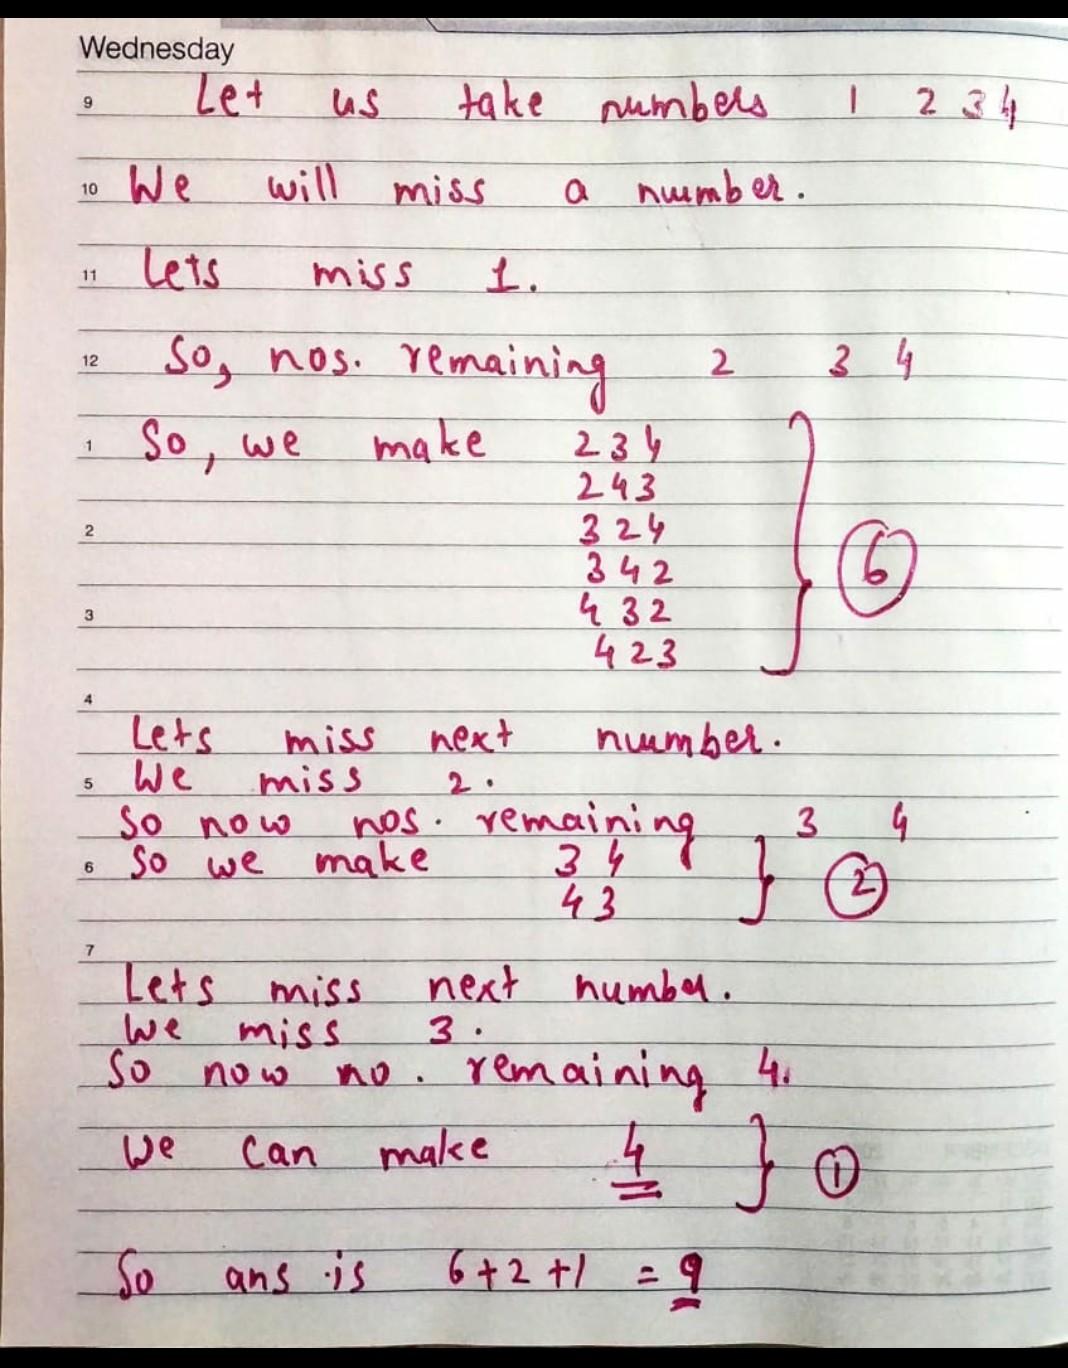 Wednesday
9 Let us take numbers 1 2 3 4
10 We will miss a number.
11 Lets miss 1.
12 So, nos. remaining 2 3 4
1 So, we make 2 3 4
2 4 3
2 3 2 4
3 4 2
3 4 3 2
4 2 3
6
4
Lets miss next number.
5 We miss 2.
So now nos. remaining 3 4
6 So we make 3 4
4 3
2
7
Lets miss next number.
We miss 3.
So now no. remaining 4.
We can make 4
1
So ans is 6+2+1 = 9